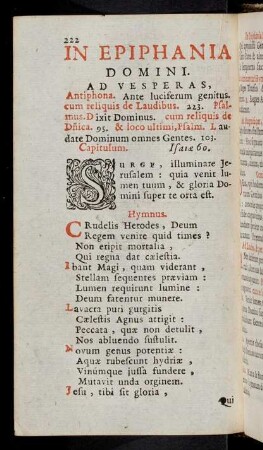 222
IN EPIPHANIA
DOMINI.
AD VESPERAS,
Antiphona. Ante luciferum genitus.
cum reliquis de Laudibus. 223. Psal-
mus. Dixit Dominus. cum reliquis de
Dñica. 95. & loco ultimi, Psalm. Lau-
date Dominum omnes Gentes. 103.
Capitulum. Isaiæ 60.
SURGE, illuminare Je-
rusalem : quia venit lu-
men tuum, & gloria Do-
mini super te orta est.
Hymnus.
CRudelis Herodes, Deum
Regem venire quid times ?
Non eripit mortalia,
Qui regna dat cælestia.
Ibant Magi, quam viderant,
Stellam sequentes præviam :
Lumen requirunt lumine :
Deum fatentur munere.
Lavacra puri gurgitis
Cælestis Agnus attigit :
Peccata, quæ non detulit,
Nos abluendo sustulit.
Novum genus potentiæ :
Aquæ rubescunt hydriæ,
Vinúmque jussa fundere,
Mutavit unda originem.
Jesu, tibi sit gloria,
Qui